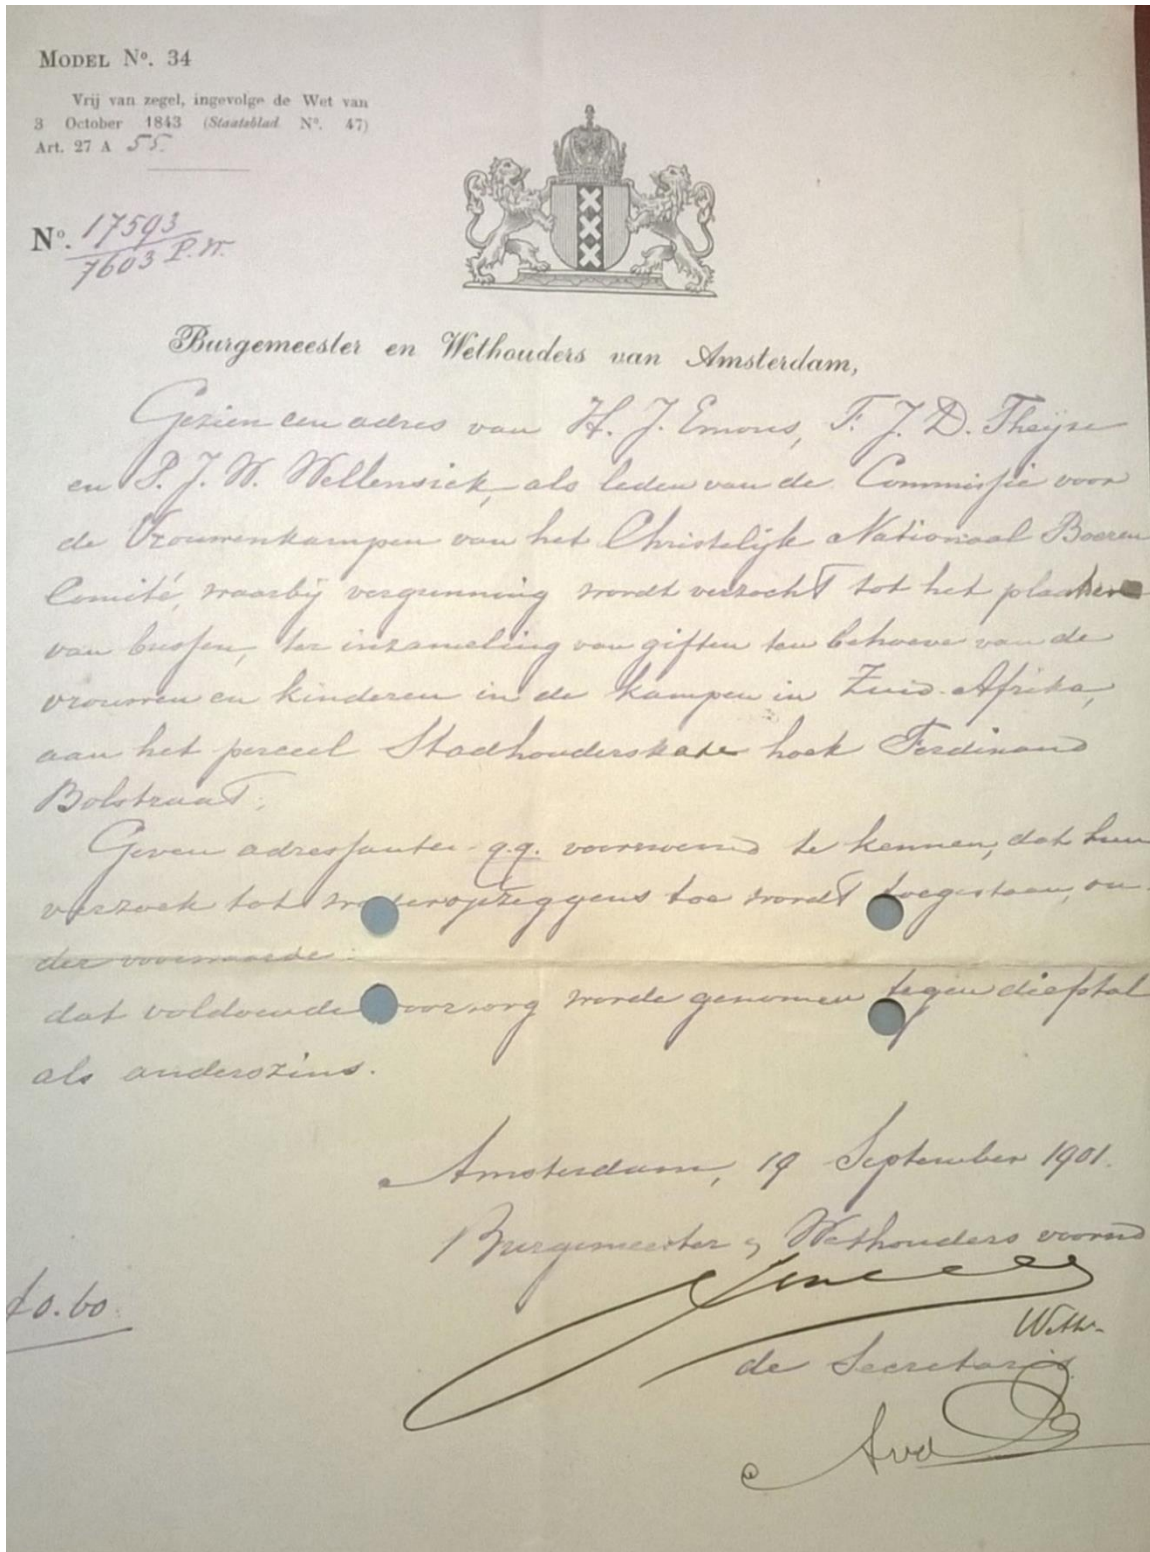 MODEL No. 34
Vrij van zegel, ingevolge de Wet van
3 October 1843 (Staatsblad No. 47)
Art. 27 A 55.
No. 17593
7603 P.W.
Burgemeester en Wethouders van Amsterdam,
Gezien een adres van H. J. Emous, F. J. D. Theijse
en P. J. W. Wellensiek, als leden van de Commissie voor
de Vrouwenkampen van het Christelijk Nationaal Boeren
Comité, waarbij vergunning wordt verzocht tot het plaatsen
van bussen, ter inzameling van giften ten behoeve van de
vrouwen en kinderen in de kampen in Zuid-Afrika,
aan het perceel Stadhouderskade hoek Ferdinand
Bolstraat;
Geven adressanten q.q. voornoemd te kennen, dat hun
verzoek tot wederopzeggens toe wordt toegestaan, on-
der voorwaarde:
dat voldoende voorzorg worde genomen tegen diefstal
als anderszins.
Amsterdam, 19 September 1901.
Burgemeester en Wethouders voornd
f0.60.
Weth.
de Secretaris